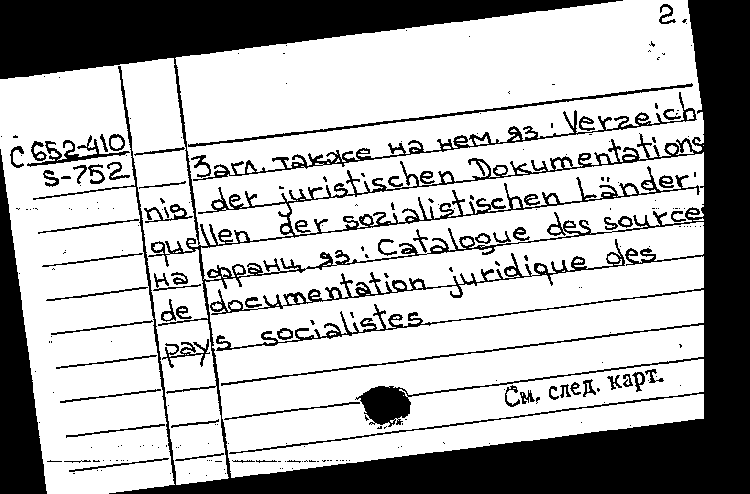 2.
С 652-410
S-752
Загл. также на нем. яз.: Verzeich-
nis der juristischen Dokumentations
quellen der sozialistischen Länder;
на франц. яз.: Catalogue des sources
de documentation juridique des
pays socialistes.
См. след. карт.